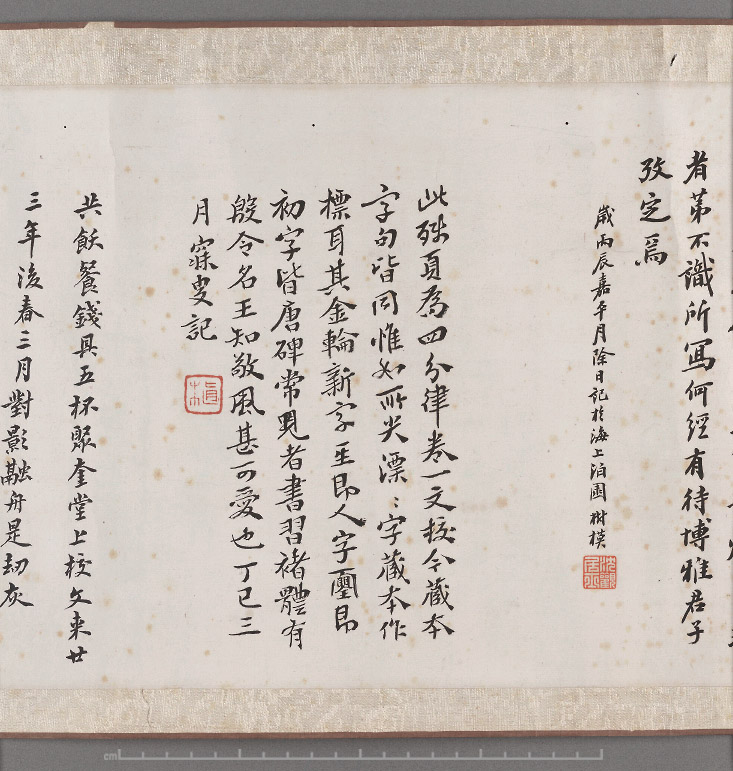 者第不識所寫何經有待博雅君子
攷定焉
歲丙辰嘉平月除日記於海上泊園樹模
沈觀居士
此殘頁為四分律卷一文校今藏本
字句皆同惟如所尖漂漂字藏本作
標耳其金輪新字𤯔即人字𡔈即
初字皆唐碑常見者書習褚體有
殷令名王知敬風甚可愛也丁巳三
月寐叟記
共飫餐錢具五杯聚奎堂上校文来廿
三年後春三月對影融舟是劫灰
cm